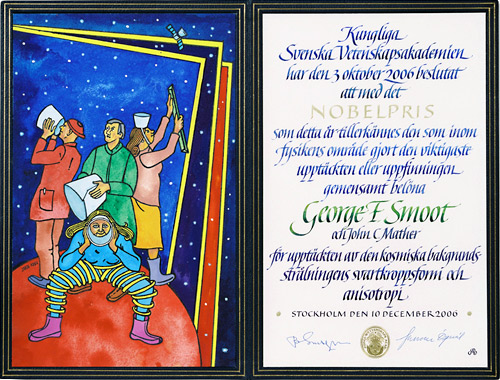 Kungliga
Svenska Vetenskapsakademien
har den 3 oktober 2006 beslutat
att med det
NOBELPRIS
som detta år tillerkännes den som inom
fysikens område gjort den viktigaste
upptäckten eller uppfinningen
gemensamt belöna
George F. Smoot
och John C Mather
för upptäckten av den kosmiska bakgrunds-
strålningens svartkroppsform och
anisotropi
STOCKHOLM DEN 10 DECEMBER 2006